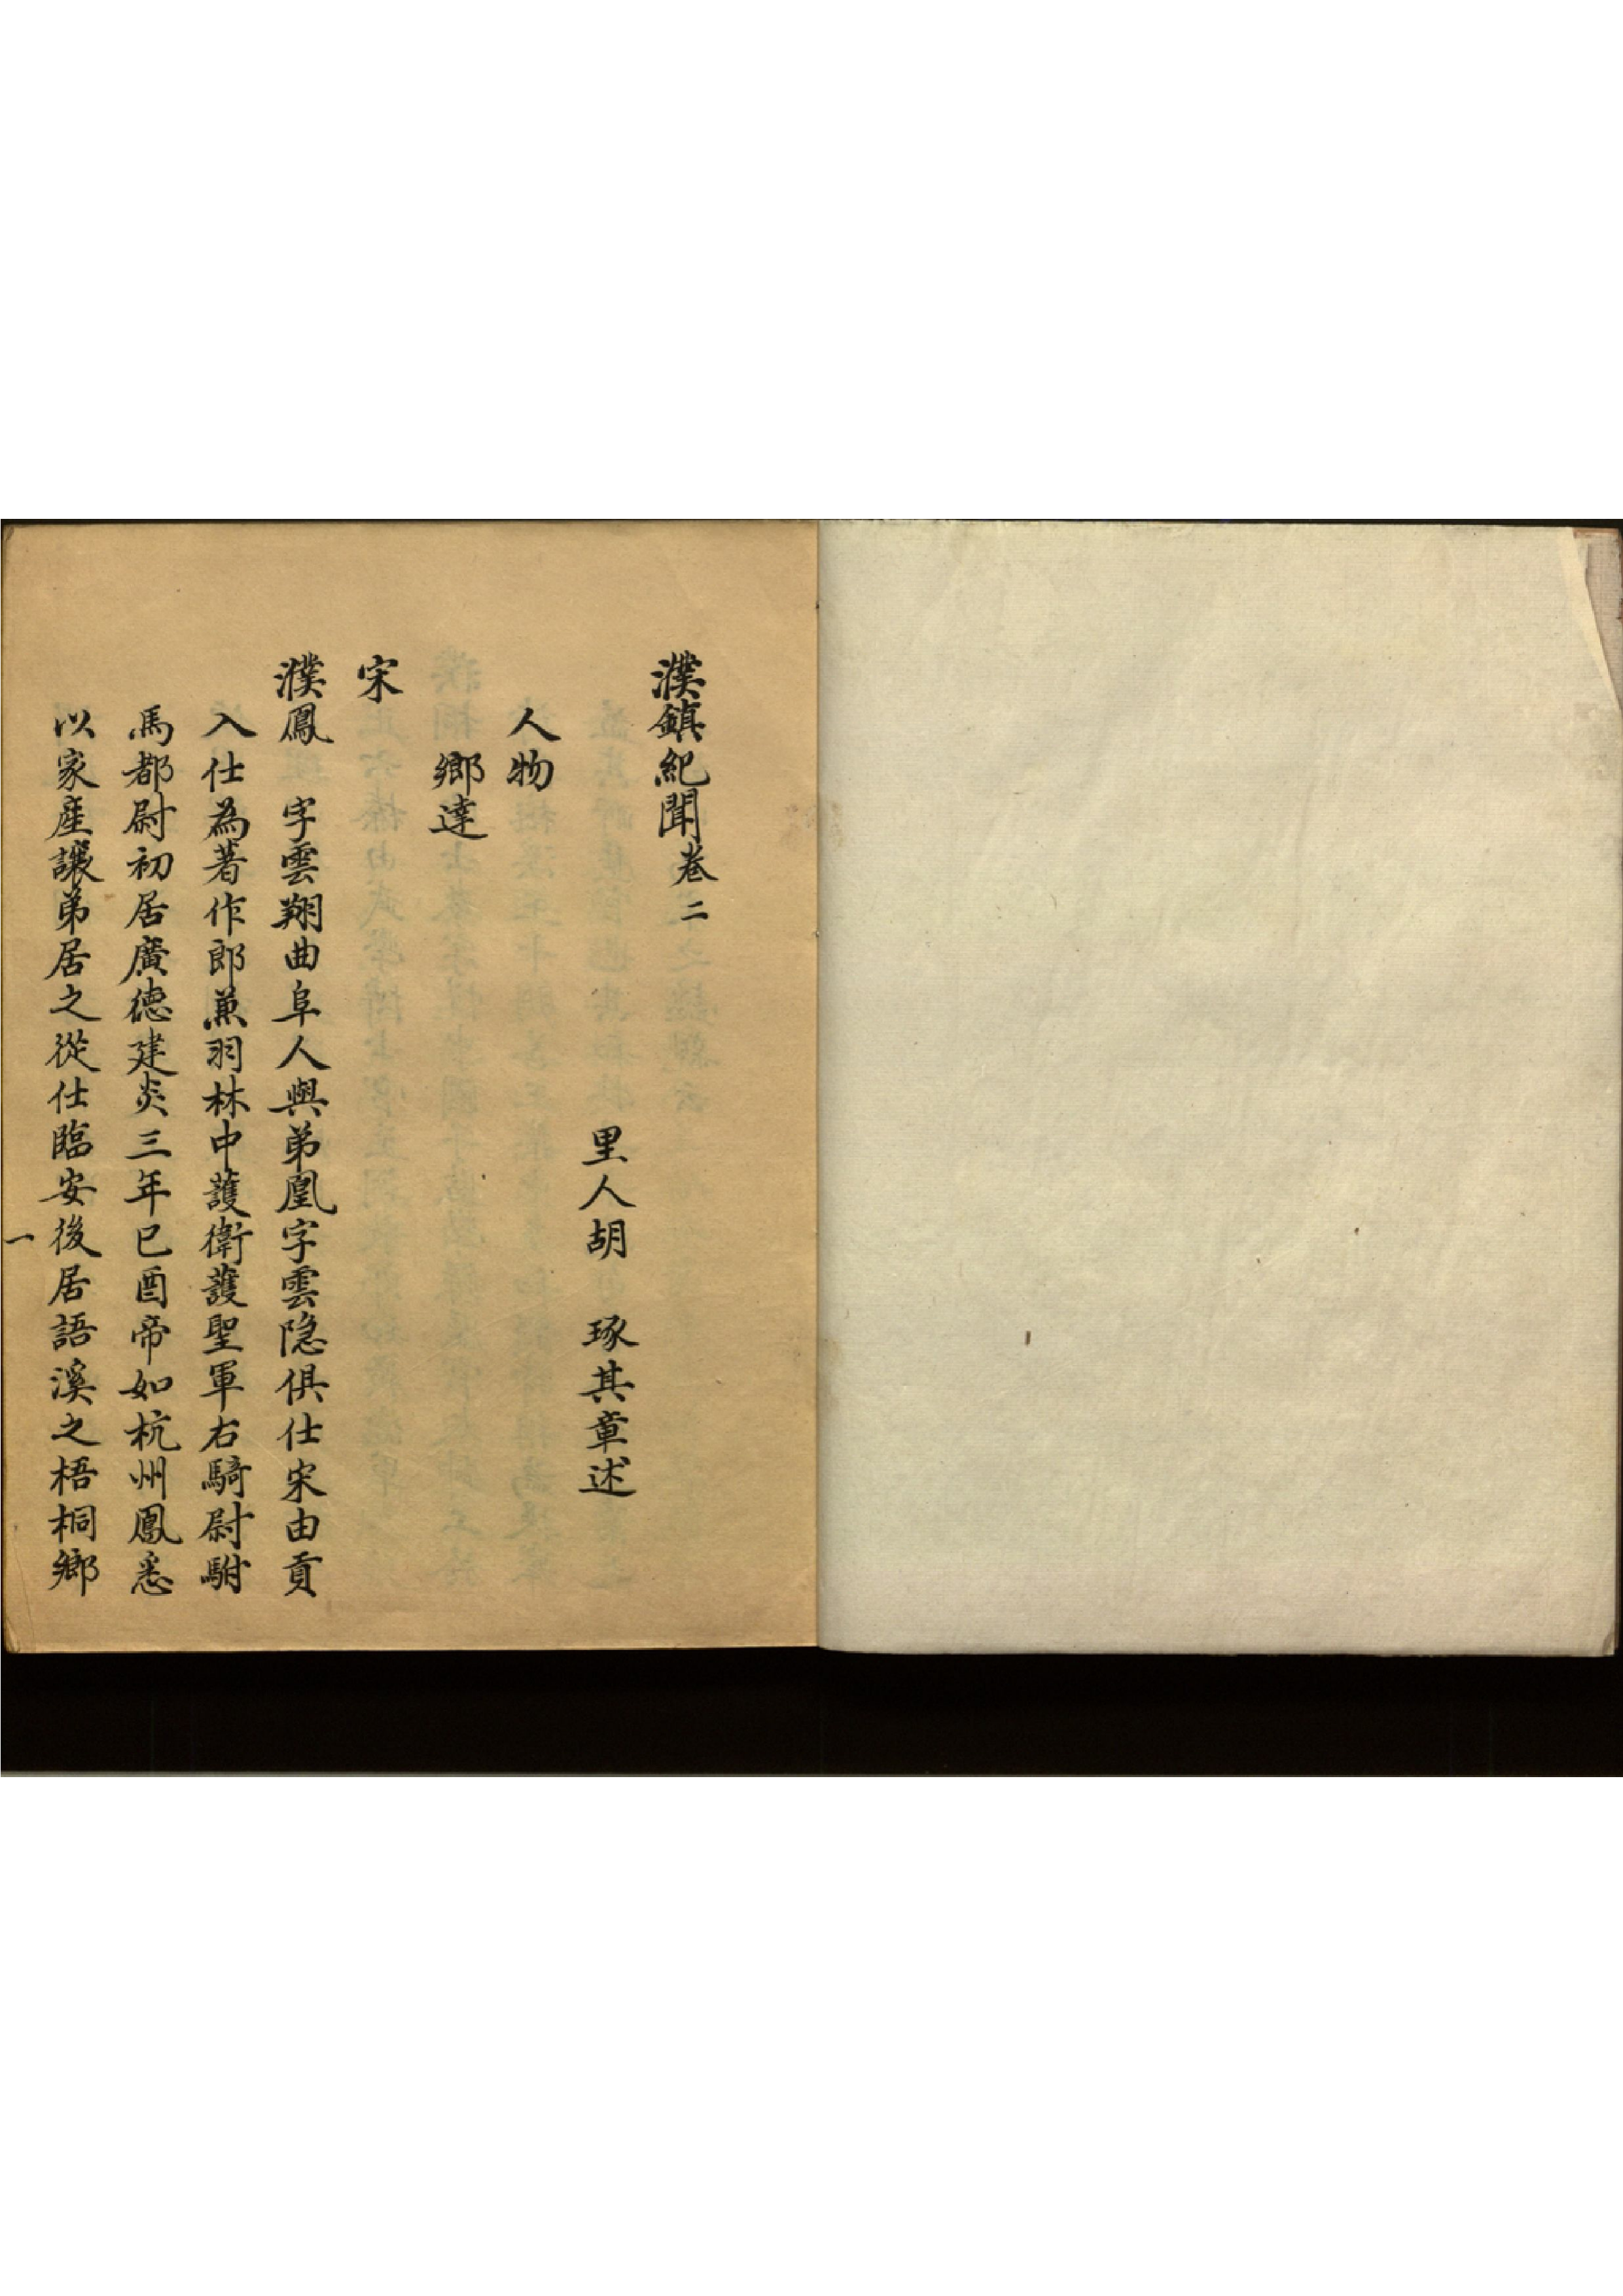 濮鎮紀聞卷二
里人胡　琢其章述
人物
鄉達
宋
濮鳳　字雲翔曲阜人與弟凰字雲隐俱仕宋由貢
入仕為著作郎兼羽林中護衛護聖軍右騎尉駙
馬都尉初居廣德建炎三年巳酉帝如杭州鳳悉
以家產讓弟居之從仕臨安後居語溪之梧桐鄉
一